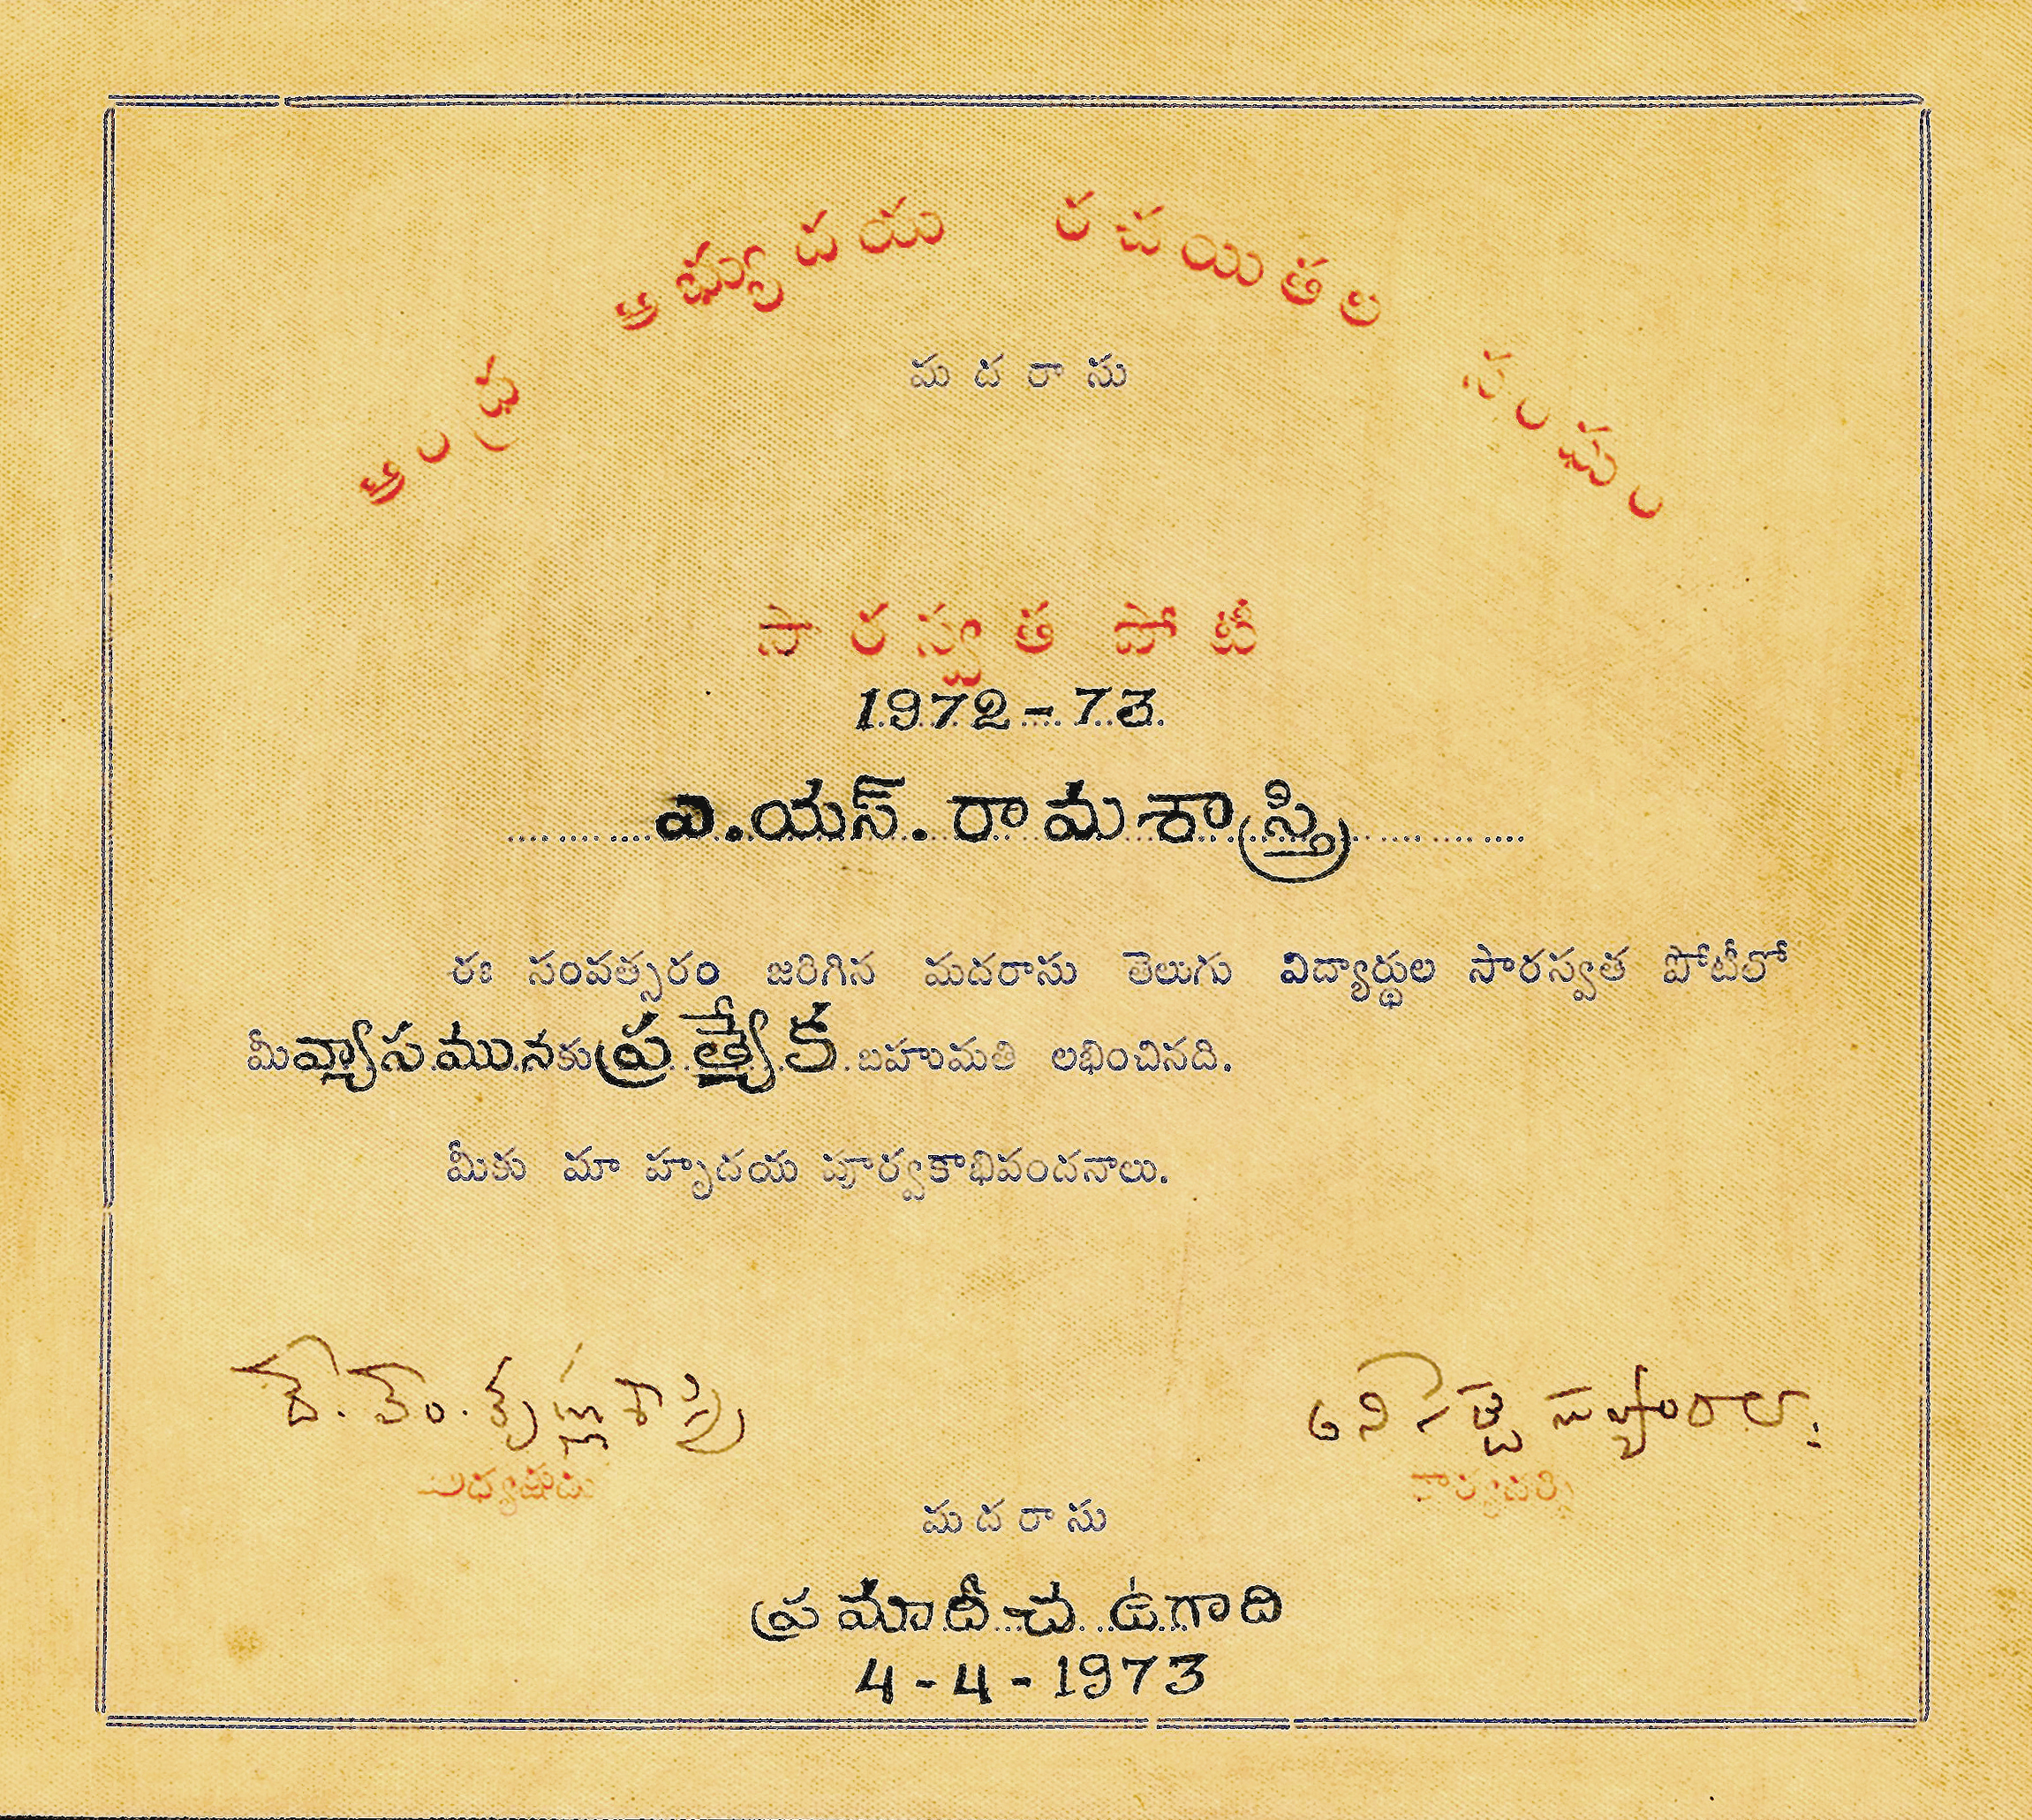 ఆంధ్ర అభ్యుదయ రచయితల సంఘం
మదరాసు
సారస్వత పోటీ
1972-73.
ఎ.యస్.రామశాస్త్రి
ఈ సంవత్సరం జరిగిన మదరాసు తెలుగు విద్యార్థుల సారస్వత పోటీలో
మీ వ్యాసమునకు ప్రత్యేక బహుమతి లభించినది.
మీకు మా హృదయ పూర్వకాభివందనాలు.
దే. వెం. కృష్ణశాస్త్రి
అనిశెట్టి సుబ్బారావు
అధ్యక్షుడు
కార్యదర్శి
మదరాసు
ప్రమాదీచ ఉగాది
4-4-1973